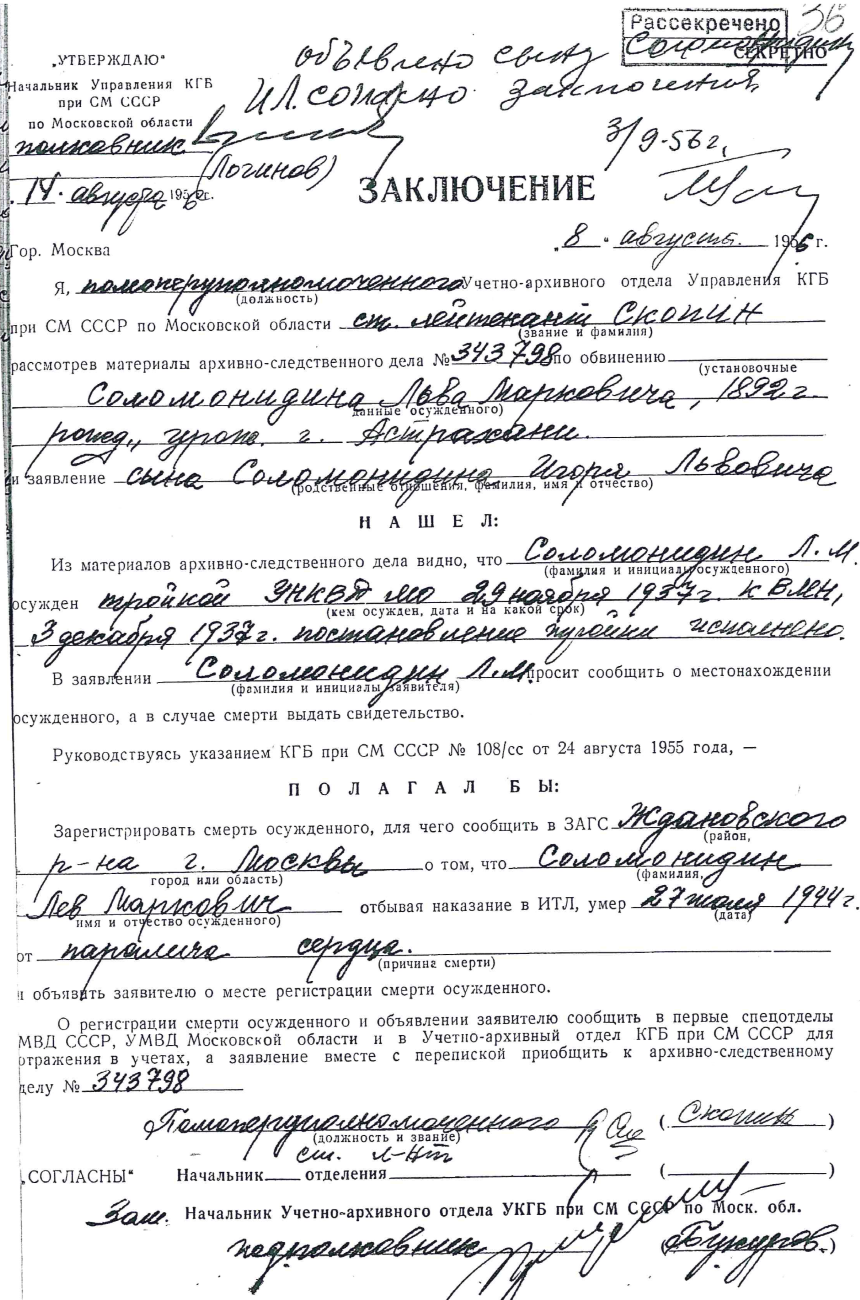 Рассекречено
36
СЕКРЕТНО
объявлено сыну Соломонидину
И.Л. согласно заключения
3/9-56 г.
„УТВЕРЖДАЮ“
Начальник Управления КГБ
при СМ СССР
по Московской области
полковник
(Логинов)
„14“ августа 1956 г.
ЗАКЛЮЧЕНИЕ
„8“ августа 1956 г.
Гор. Москва
Я, помоперуполномоченного Учетно-архивного отдела Управления КГБ
(должность)
при СМ СССР по Московской области ст. лейтенант Скопин
(звание и фамилия)
рассмотрев материалы архивно-следственного дела № 343798 по обвинению
(установочные
Соломонидина Льва Марковича, 1892 г.
данные осужденного)
рожд., урож. г. Астрахани.
и заявление сына Соломонидина Игоря Львовича
(родственные отношения, фамилия, имя и отчество)
НАШЕЛ:
Из материалов архивно-следственного дела видно, что Соломонидин Л. М.
(фамилия и инициалы осужденного)
осужден тройкой УНКВД МО 29 ноября 1937 г. к ВМН,
(кем осужден, дата и на какой срок)
3 декабря 1937 г. постановление тройки исполнено.
В заявлении Соломонидин Л. М. просит сообщить о местонахождении
(фамилия и инициалы заявителя)
осужденного, а в случае смерти выдать свидетельство.
Руководствуясь указанием КГБ при СМ СССР № 108/сс от 24 августа 1955 года, —
ПОЛАГАЛ БЫ:
Зарегистрировать смерть осужденного, для чего сообщить в ЗАГС Ждановского
(район,
р-на г. Москвы о том, что Соломонидин
город или область) (фамилия,
Лев Маркович отбывая наказание в ИТЛ, умер 27 июля 1944 г.
имя и отчество осужденного) (дата)
от паралича сердца.
(причина смерти)
и объявить заявителю о месте регистрации смерти осужденного.
О регистрации смерти осужденного и объявлении заявителю сообщить в первые спецотделы
МВД СССР, УМВД Московской области и в Учетно-архивный отдел КГБ при СМ СССР для
отражения в учетах, а заявление вместе с перепиской приобщить к архивно-следственному
делу № 343798
Помоперуполномоченного (Скопин)
(должность и звание)
ст. л-нт
„СОГЛАСНЫ“ Начальник отделения ( )
Зам. Начальник Учетно-архивного отдела УКГБ при СМ СССР по Моск. обл.
подполковник